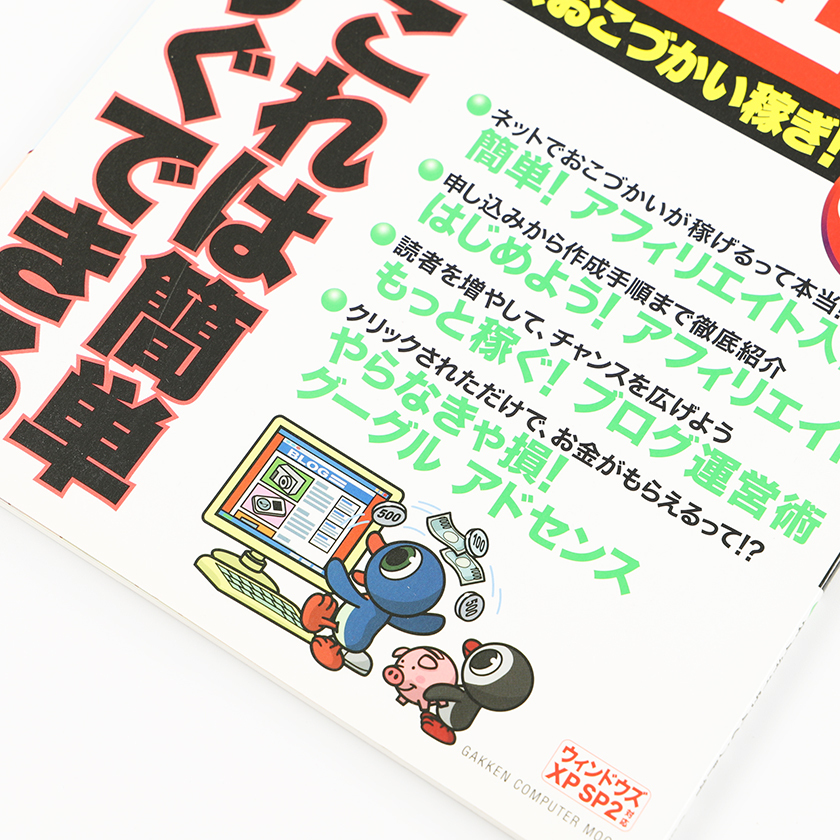 おこづかい稼ぎ!
これは簡単
ぐできる
ネットでおこづかいが稼げるって本当!
簡単! アフィリエイト入
申し込みから作成手順まで徹底紹介
はじめよう! アフィリエイト
読者を増やして、チャンスを広げよう
もっと稼ぐ! ブログ運営術
クリックされただけで、お金がもらえるって!?
やらなきゃ損!
グーグル アドセンス
BLOG
500
100
500
GAKKEN COMPUTER MOO
ウィンドウズ
XP SP2対応